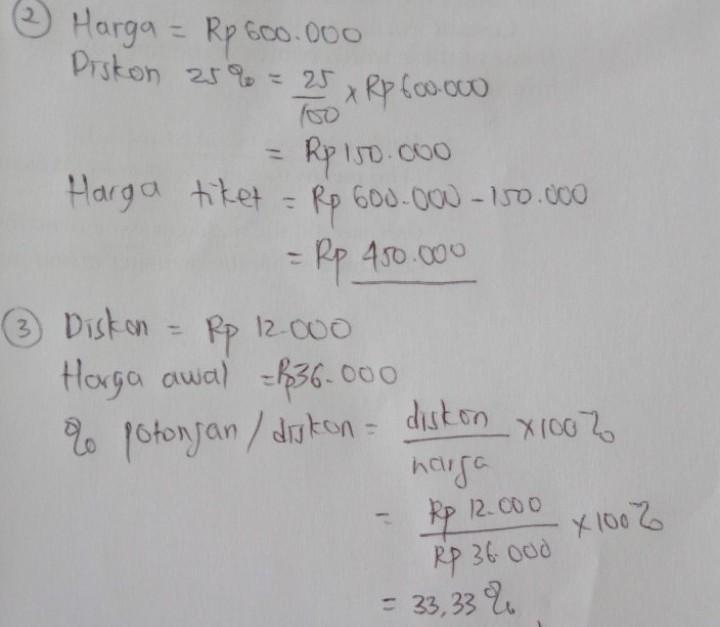 ② Harga = Rp 600.000
Diskon 25% = 25/100 x Rp 600.000
= Rp 150.000
Harga tiket = Rp 600.000 - 150.000
= Rp 450.000
③ Diskon = Rp 12.000
Harga awal = Rp 36.000
% potongan / diskon = diskon/harga x 100%
= Rp 12.000/Rp 36.000 x 100%
= 33,33 %